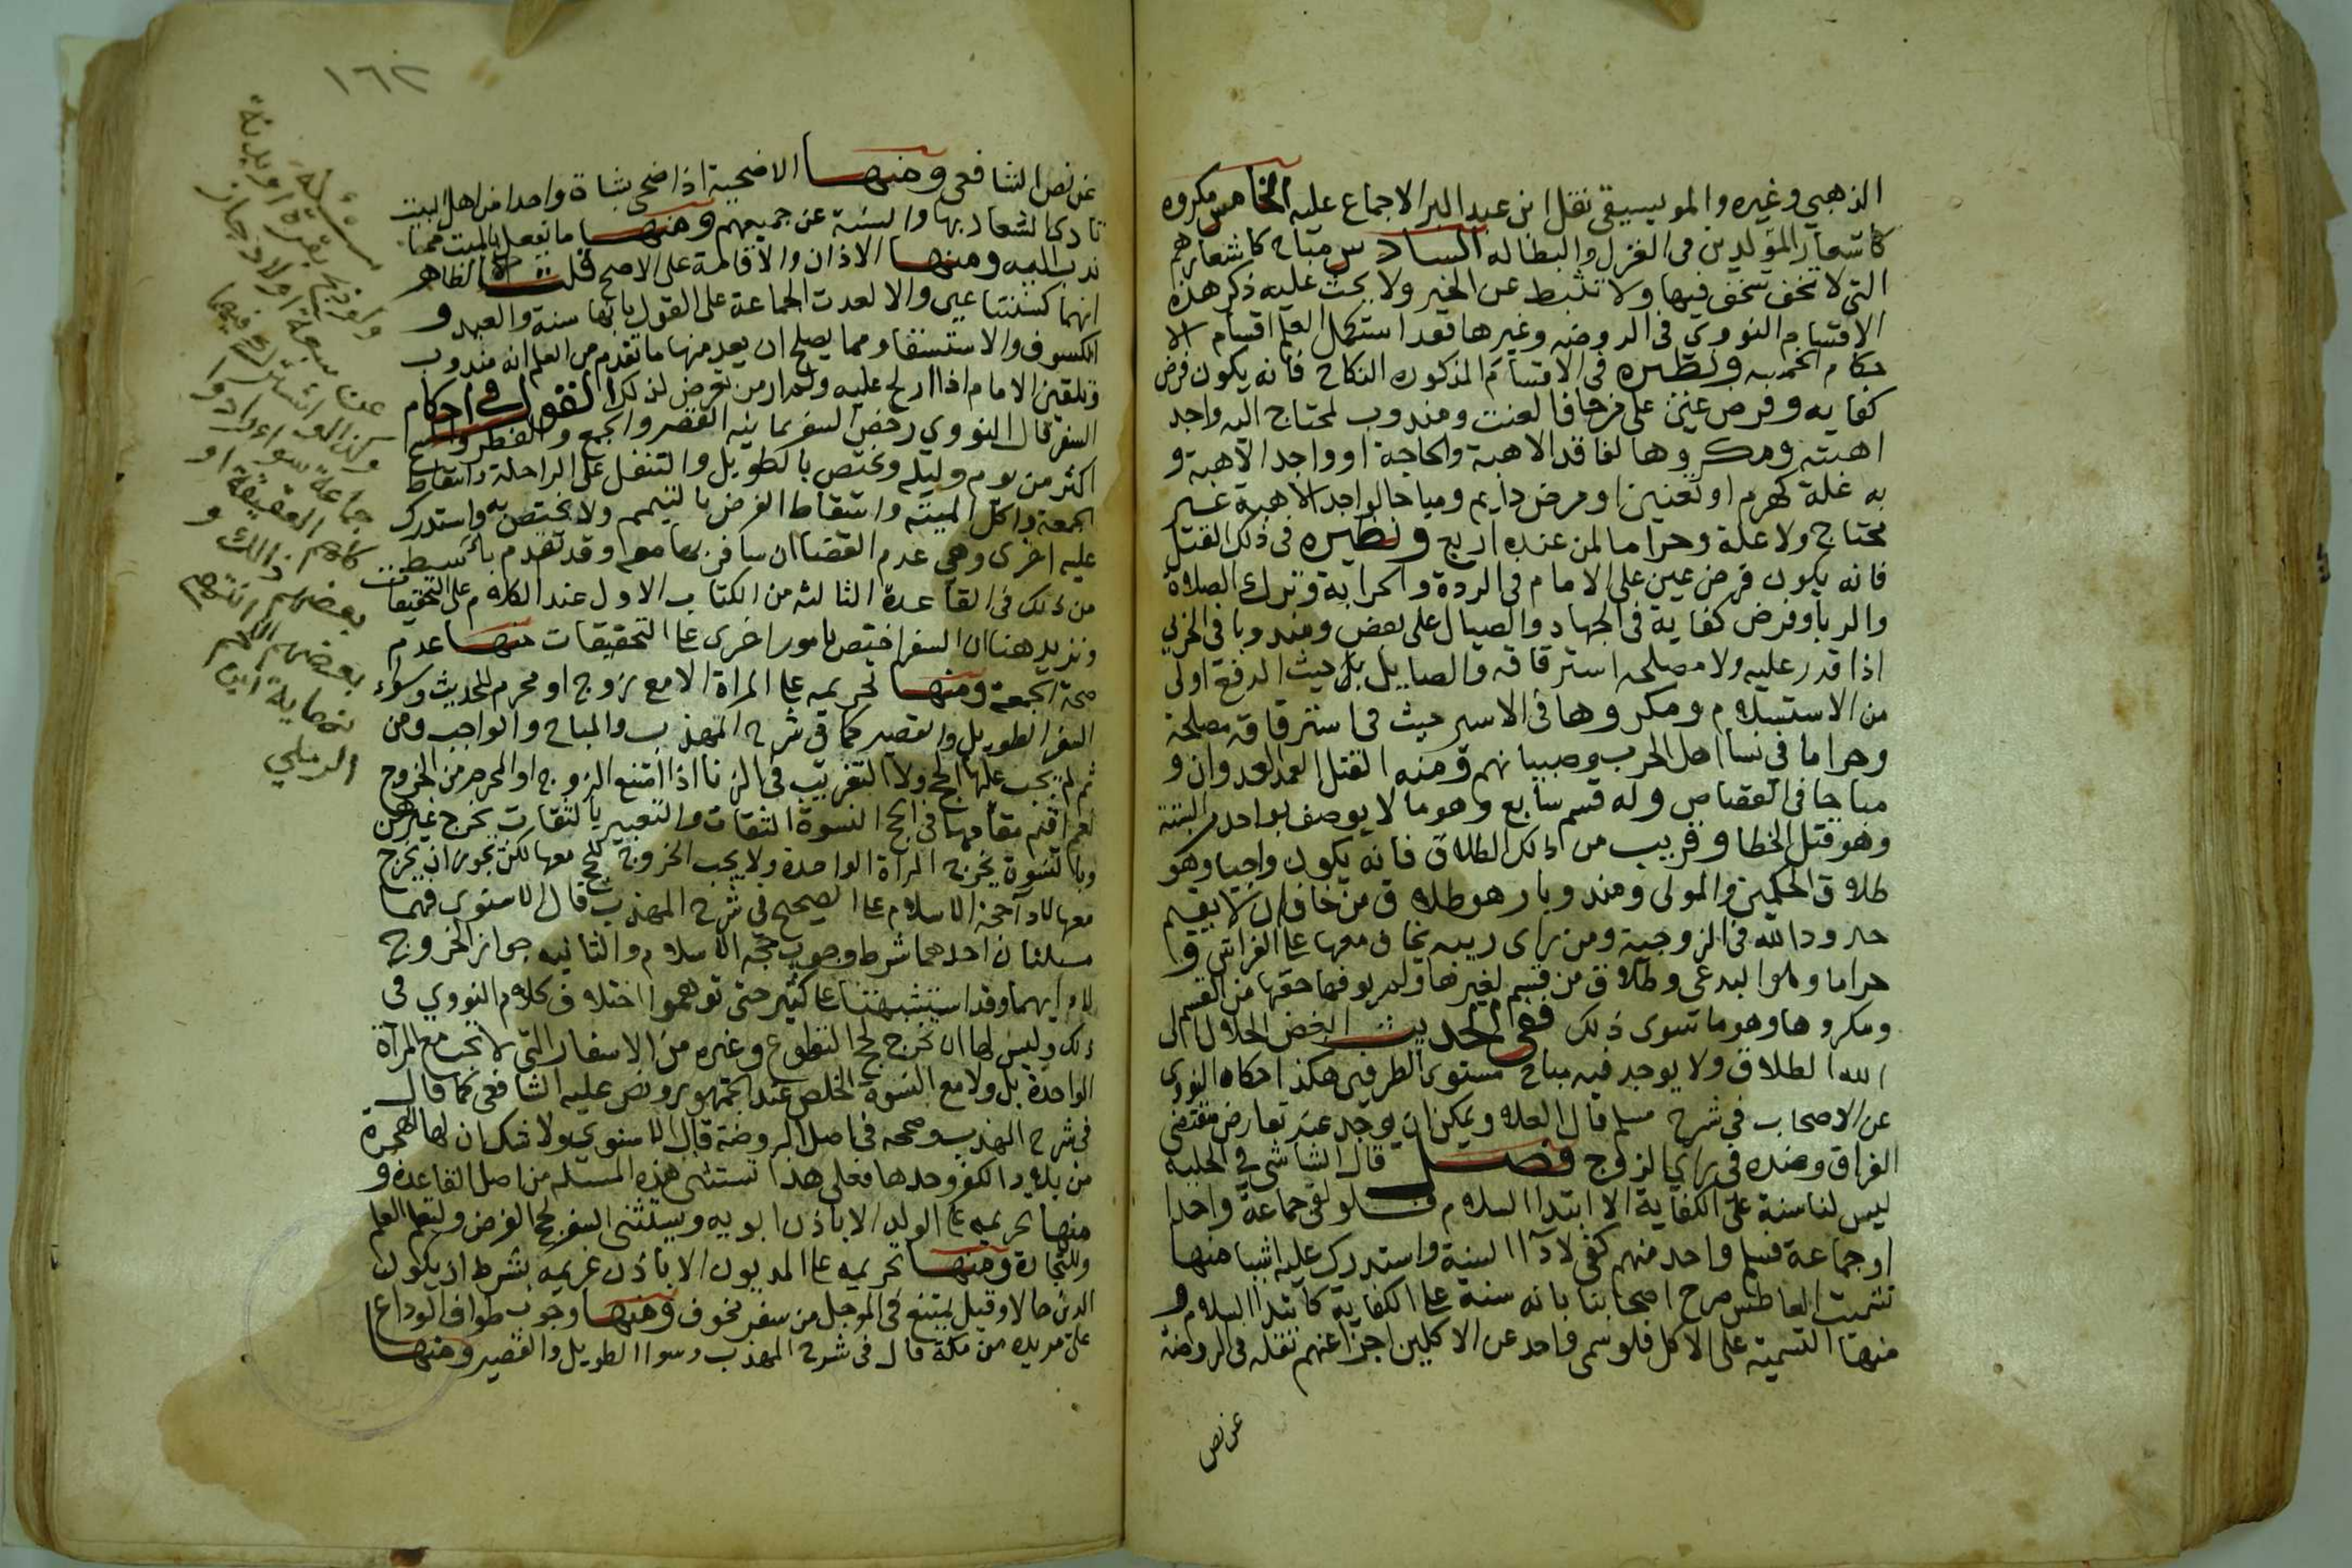 الذهبي وغيره والموسيقي نقل ابن عبد البر الاجماع عليه الخامس مكروه
كاشعار المولدين في الغزل والبطاله السادس مباح كاشعارهم
التي لا سخف فيها ولا تثبط عن الخير ولا يحث عليه ذكر هذه
الاقسام النووي في الروضه وغيرها فقد استكمل العلم اقسام الا
حكام الخمسه ونظيره في الاقسام المذكوره النكاح فانه يكون فرض
كفايه وفرض عين على من خاف العنت ومندوب لمحتاج اليه واجد
اهبته ومكروها لفاقد الاهبة والحاجة او واجد الاهبة و
به علة كهرم او تعنين او مرض دايم ومباحا لواجد الاهبة غير
محتاج ولا علة وحراما لمن عنده اربع ونظيره في ذلك القتل
فانه يكون فرض عين على الامام في الردة والحرابة وترك الصلاة
والربا وفرض كفاية في الجهاد والصيال على بعض ومندوبا في الحربي
اذا قدر عليه ولا مصلحه استرقاقه والصايل بل حيث الدفع اولى
من الاستسلام ومكروها في الاسير حيث في استرقاقه مصلحة
وحراما في نسا اهل الحرب وصبيانهم ومنه القتل العمد العدوان و
مباحا في القصاص وله قسم سابع وهو ما لا يوصف بواحد البتة
وهو قتل الخطا وقريب من ذلك الطلاق فانه يكون واجبا وهو
طلاق الحكمين والمولى ومندوبا وهو طلاق من خاف ان لا يقيم
حدود الله في الزوجية ومن راى ريبه يخاف معها على الفراش و
حراما وهو البدعي وطلاق من قسم لغيرها ولم يوفها حقها من القسم
ومكروها وهو ما سوى ذلك ففي الحديث ابغض الحلال الى
الله الطلاق ولا يوجد فيه مباح مستوى الطرفين هكذا حكاه النووي
عن الاصحاب في شرح مسلم قال العلا ويمكن ان يوجد عند تعارض مقتضى
الفراق وضده في راي الزوج فصل قال الشاشي في الحليه
ليس لنا سنة على الكفاية الا ابتدا السلام فلو لقي جماعة واحدا
او جماعة فسلم واحد منهم كفى لادآ السنة واستدرك عليه اشيا منها
تشميت العاطس صرح اصحابنا بانه سنة على الكفاية كابتدا السلام و
منها التسمية على الاكل فلو سمى واحد عن الاكلين اجزا عنهم نقله في الروضة
عن نص
١٦٢
عن نص الشافعي ومنها الاضحية اذا ضحى بشاة واحد من اهل البيت
تادى الشعار بها والسنة عن جميعهم ومنها ما يفعل بالميت مما
ندب اليه ومنها الاذان والاقامة على الاصح قلت الظاهر
انهما كسنتا عين والا لعدت الجماعة على القول بانها سنة والعيد و
الكسوف والاستسقا ومما يصلح ان يعد منها ما تقدم من العلم انه مندوب
وتلقين الامام اذا ارتج عليه ولم ار من تعرض لذلك القول في احكام
السفر قال النووي رخص السفر ثمانيه القصر والجمع والفطر والمسح
اكثر من يوم وليله وتختص بالطويل والتنفل على الراحلة واسقاط
الجمعة واكل الميته واسقاط الفرض بالتيمم ولا تختص به واستدرك
عليه اخرى وهي عدم القضا ان سافر بها معه وقد تقدم بابسط
من ذلك في القاعدة الثالثه من الكتاب الاول عند الكلام على التخفيفات
ونزيد هنا ان السفر اختص بامور اخرى على التحقيقات منها عدم
صحة الجمعة ومنها تحريمه على المراة الا مع زوج او محرم للحديث وسواء
السفر الطويل والقصير كما في شرح المهذب والمباح والواجب ومن
ثم لم يجب عليها الحج ولا التغريب في الزنا اذا امتنع الزوج او المحرم من الخروج
نعم اقيم مقامهما في الحج النسوة الثقات والتعبير بالثقات يخرج غيرهن
وبالنسوة يخرج المراة الواحدة ولا يجب الخروج للحج معها لكن يجوز ان يخرج
معها لادآ حجة الاسلام على الصحيح في شرح المهذب قال الاسنوي فهما
مسلتان احدهما شرط وجوب حجة الاسلام والثانيه جواز الخروج
لادايهما وقد اشتبهتا على كثير حتى توهموا اختلاف كلام النووي في
ذلك وليس لها ان تخرج لحج التطوع وغيره من الاسفار التي لا تجب مع المرآة
الواحدة بل ولا مع النسوة الخلص عند الجمهور ونص عليه الشافعي كما قال
في شرح المهذب وصححه في اصل الروضة قال الاسنوي ولا شك ان لها الهجرة
من بلاد الكفر وحدها فعلى هذا تستثنى هذه المسله من اصل القاعدة و
منها تحريمه على الولد الا باذن ابويه ويستثنى السفر لحج الفرض ولتعلم العلم
وللتجارة ومنها تحريمه على المديون الا باذن غريمه بشرط ان يكون
الدين حالا وقيل يمتنع في الموجل من سفر مخوف ومنها وجوب طواف الوداع
على مريده من مكة قال في شرح المهذب وسوا الطويل والقصير ومنها
مسئلة
ولو ذبح بقرة او بدنة
عن سبعة اولاد جاز
وكذا لو اشترك فيهما
جماعة سواء ارادوا
كلهم العقيقة او
بعضهم ذلك و
بعضهم اللحم انتهى
نهاية
الرملي